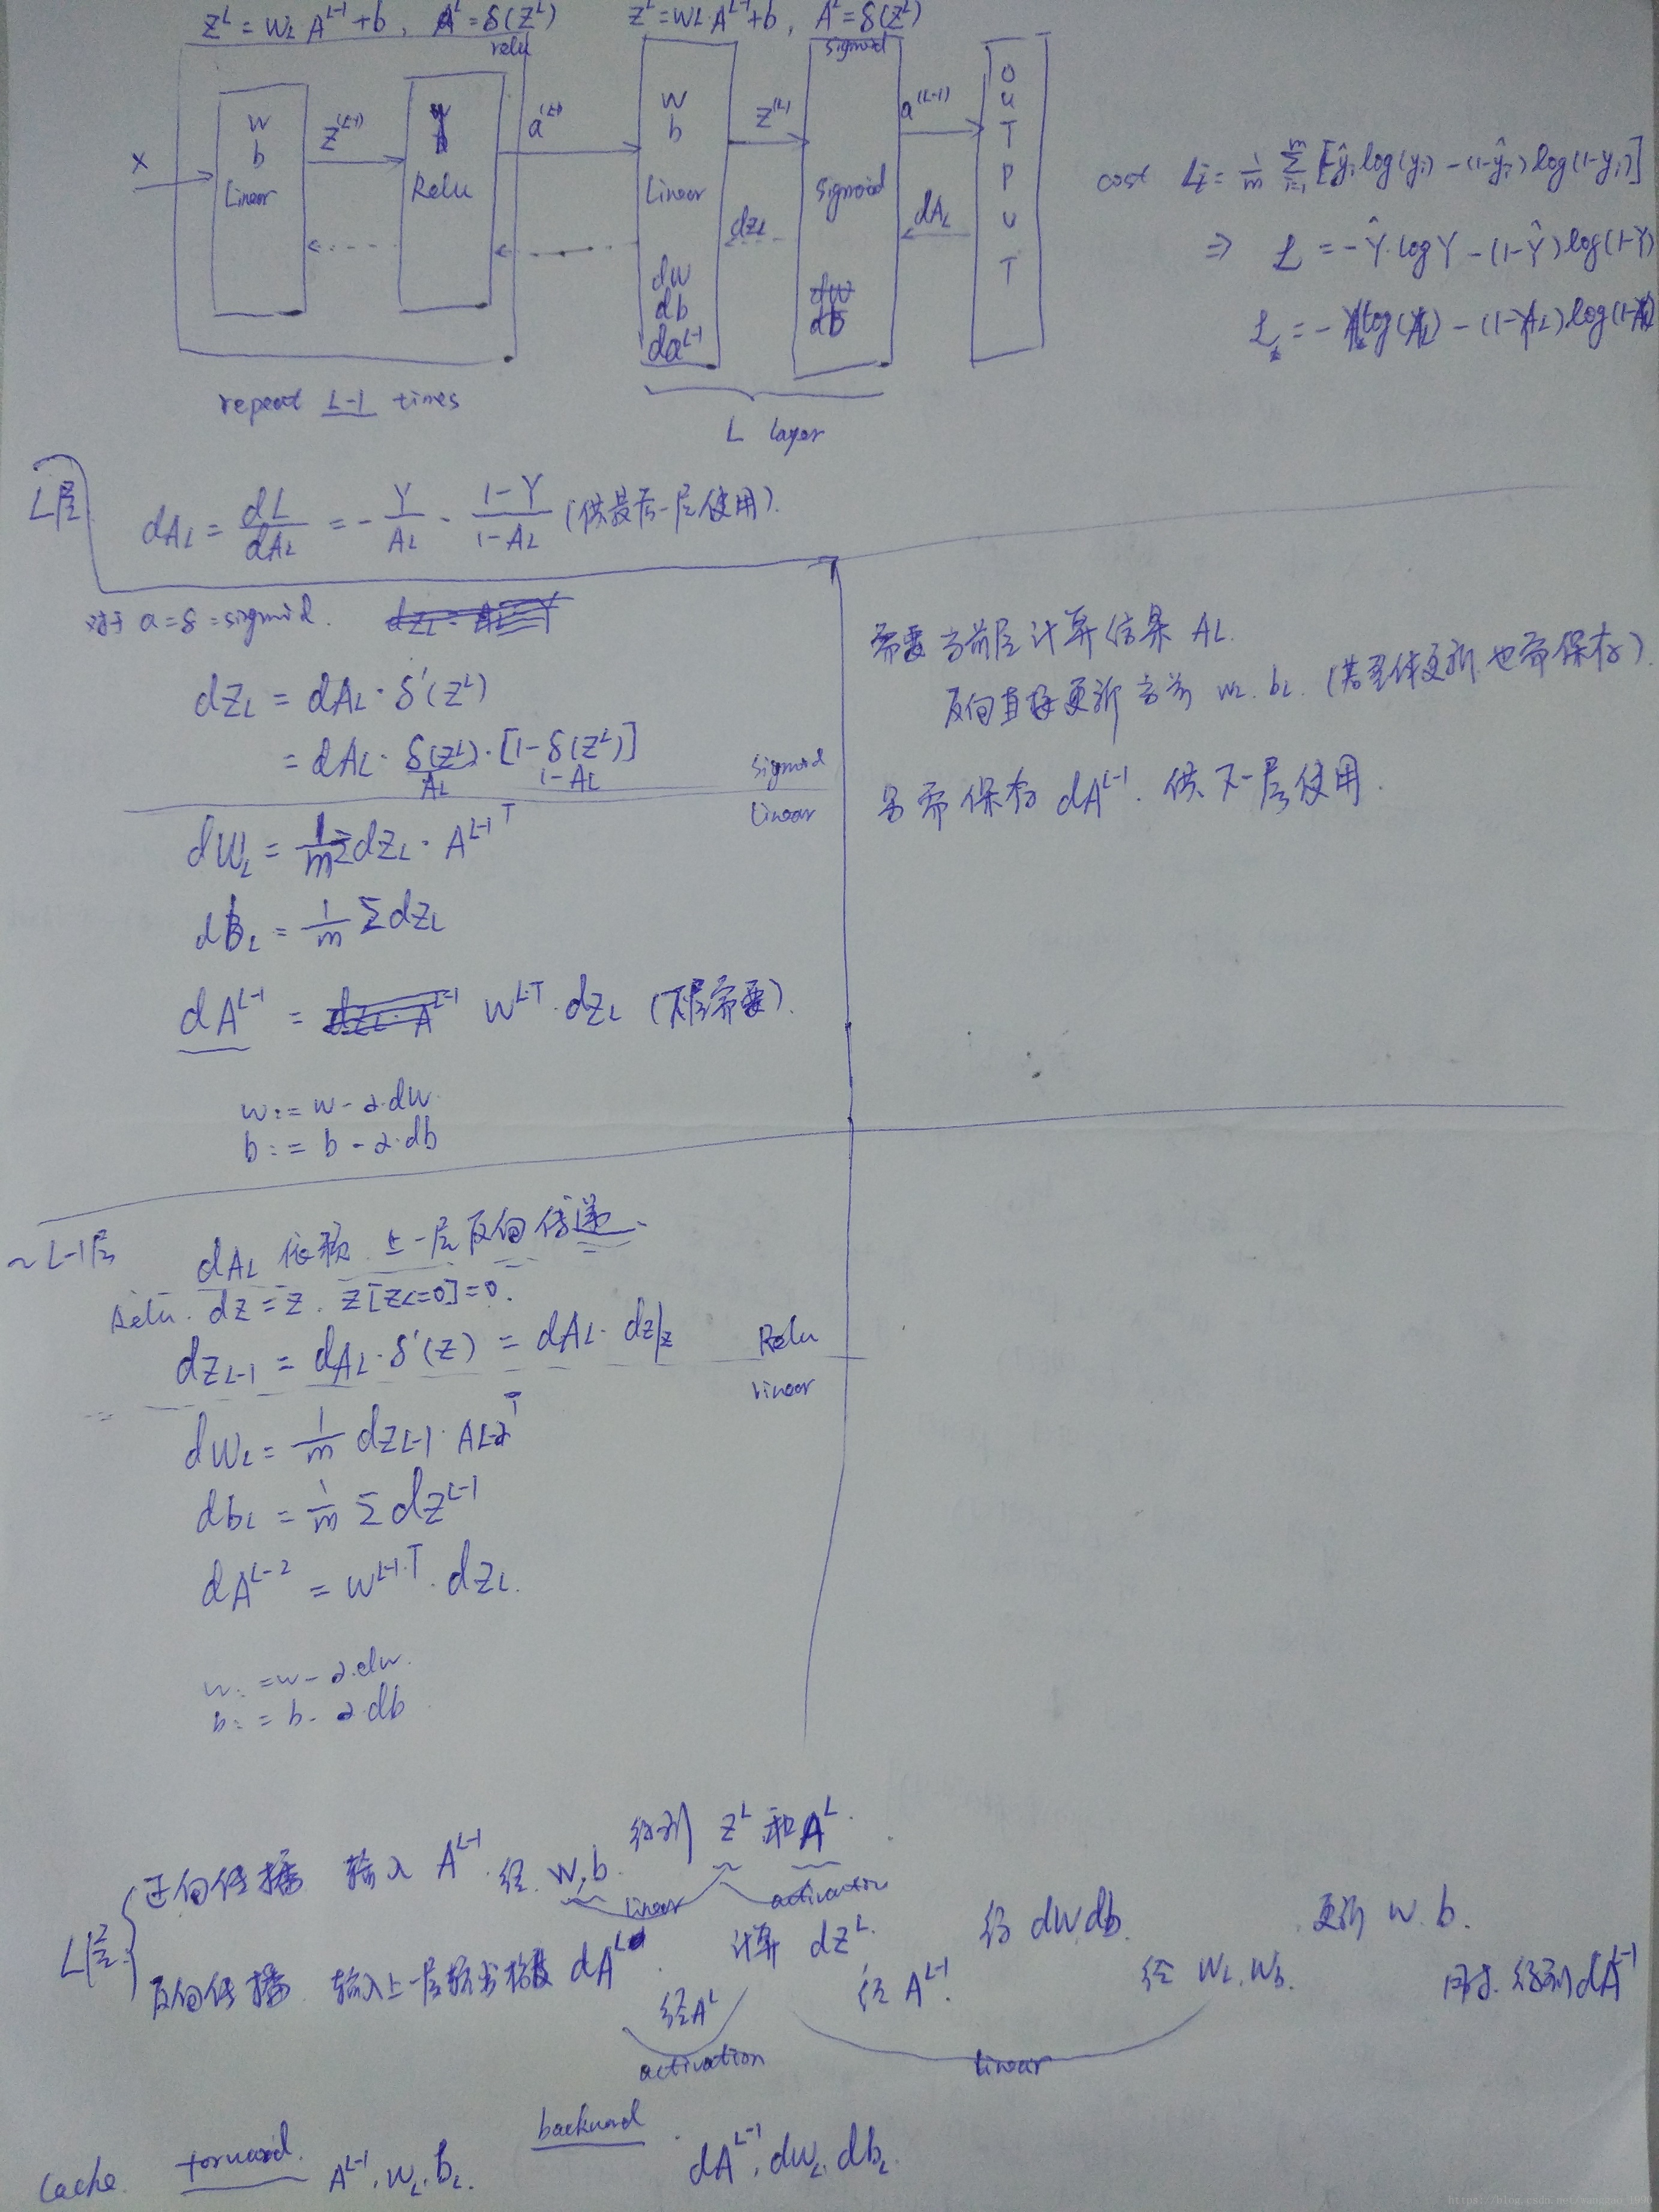 Z^L = W_L A^{L-1} + b, A^L = δ(Z^L) relu
Z^L = W_L A^{L-1} + b, A^L = δ(Z^L) sigmoid
x
w
b
Linear
Z^{(L-1)}
Relu
a^{(L-1)}
w
b
Linear
dw
db
da^{L-1}
Z^{(L)}
dZ_L
sigmoid
dw
db
a^{(L-1)}
dA_L
OUTPUT
repeat L-1 times
L layer
cost L_i = 1/m Σ_{i=1}^{m} [-ŷ_i log(y_i) - (1-ŷ_i) log(1-y_i)]
⇒ L = -Ŷ·log Y - (1-Ŷ) log(1-Y)
L层
dA_L = dL/dA_L = - Y/A_L - (1-Y)/(1-A_L) (供最后一层使用).
对于 a = δ = sigmoid.
dZ_L = dA_L · δ'(Z^L)
= dA_L · δ(Z^L) · [1-δ(Z^L)]
A_L 1-A_L
sigmoid
Linear
dW_L = 1/m Σ dZ_L · A^{L-1 T}
db_L = 1/m Σ dZ_L
dA^{L-1} = W^{L·T} · dZ_L (下层需要).
w := w - α·dw
b := b - α·db
需要当前层计算结果 AL.
反向直接更新当前 WL. bL. (若整体更新.也需保存).
另需保存 dA^{L-1}. 供下一层使用.
~L-1层
dA_L 依赖上一层反向传递.
Relu. dz = z. z[z<=0]=0.
dZ_{L-1} = dA_L · δ'(z) = dA_L · dz/z
Relu
Linear
dW_L = 1/m dZ_{L-1} · A_{L-2}^T
db_L = 1/m Σ dZ^{L-1}
dA^{L-2} = W^{L-1·T} · dZ_L.
w := w - α·dw.
b := b - α·db
L层:
正向传播 输入 A^{L-1}. 经 W,b. 得到 Z^L 和 A^L.
linear activation
反向传播 输入上一层输出 dA^L. 经A^L 计算 dZ^L. 经 A^{L-1}. 得 dW db. 经 W_L, W_b. 更新 w. b. 同时 得到 dA^{L-1}
activation linear
cache forward A^{L-1}, W_L. b_L. backward dA^{L-1}, dW_L, db_L